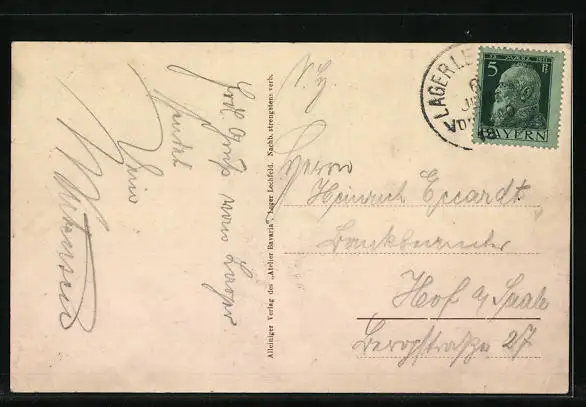 Frdl. Gruß vom Lager.
sendet
Dein
Alleiniger Verlag des „Atelier Bavaria“, Lager Lechfeld. Nachb. strengstens verb.
LAGER LE
12. MÄRZ 1911
5 Pf
BAYERN
Herrn
Heinrich Eccardt
Bankbeamter
Hof a/ Saale
Bergstraße 27